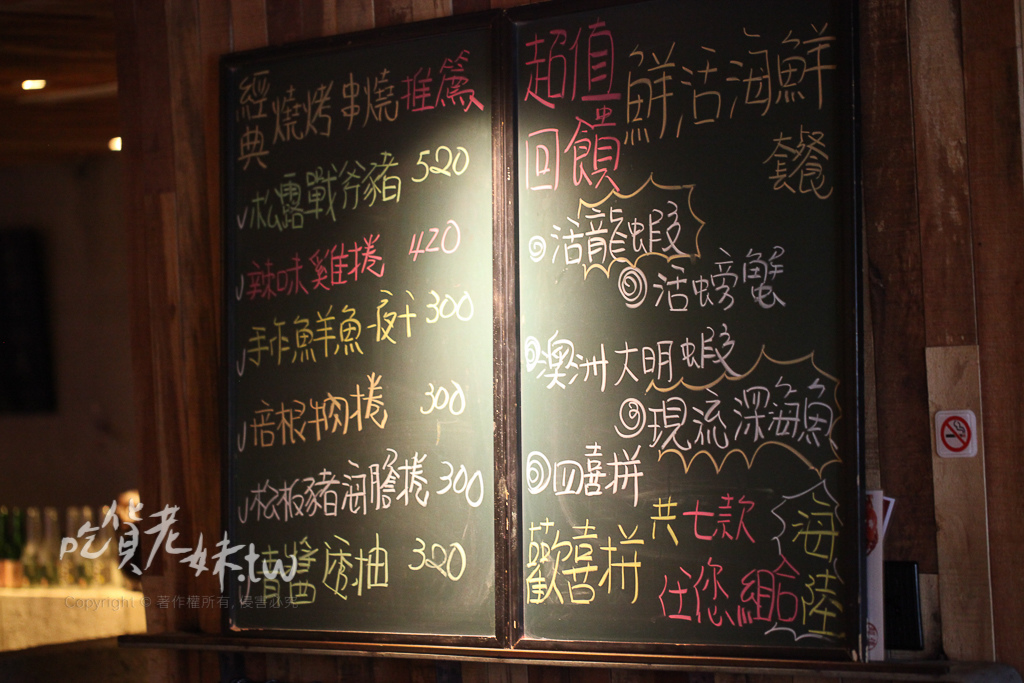 經典燒烤串燒推薦
✓松露戰斧豬 520
✓辣味雞捲 420
✓手作鮮魚一夜干 300
✓培根牛肉捲 300
✓松板豬海膽捲 300
醬透抽 320
超值回饋
鮮活海鮮
套餐
活龍蝦
活螃蟹
澳洲大明蝦
現流深海魚
四喜拼
歡喜拼
共七款
任您組合
海陸
吃貨老妹.tw
Copyright © 著作權所有, 侵害必究